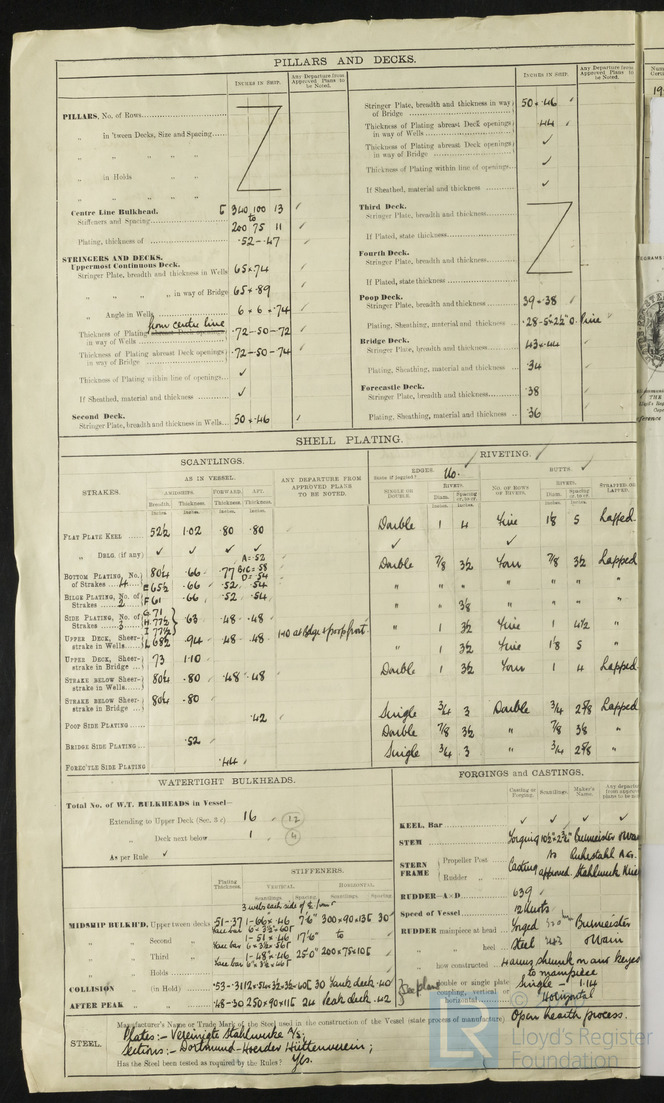 PILLARS AND DECKS.
INCHES IN SHIP.
Any Departure from Approved Plans to be Noted.
PILLARS, No. of Rows
„ in 'tween Decks, Size and Spacing
„ „ „ „
„ in Holds „ „
„ „ „ „
Centre Line Bulkhead.
Stiffeners and Spacing
[ 340 100 13
to
200 75 11
Plating, thickness of .52-.47
STRINGERS AND DECKS.
Uppermost Continuous Deck.
Stringer Plate, breadth and thickness in Wells 65 x .74
„ „ „ „ in way of Bridge 65 x .89
„ Angle in Wells 6 x 6 x .74
from centre line
Thickness of Plating abreast Deck openings in way of Wells .72-50-72
Thickness of Plating abreast Deck openings in way of Bridge .72-50-74
Thickness of Plating within line of openings ✓
If Sheathed, material and thickness ✓
Second Deck.
Stringer Plate, breadth and thickness in Wells 50 x .46
INCHES IN SHIP.
Any Departure from Approved Plans to be Noted.
Stringer Plate, breadth and thickness in way of Bridge 50 x .46
Thickness of Plating abreast Deck openings in way of Wells .44
Thickness of Plating abreast Deck openings in way of Bridge ✓
Thickness of Plating within line of openings ✓
If Sheathed, material and thickness ✓
Third Deck.
Stringer Plate, breadth and thickness
If Plated, state thickness
Fourth Deck.
Stringer Plate, breadth and thickness
If Plated, state thickness
Poop Deck.
Stringer Plate, breadth and thickness 39 x .38
Plating, Sheathing, material and thickness .28-5"x2½" O. Pine
Bridge Deck.
Stringer Plate, breadth and thickness 43 x .44
Plating, Sheathing, material and thickness .34
Forecastle Deck.
Stringer Plate, breadth and thickness .38
Plating, Sheathing, material and thickness .36
SHELL PLATING.
SCANTLINGS.
RIVETING.
STRAKES.
AS IN VESSEL.
AMIDSHIPS. FORWARD. AFT.
Breadth. Thickness. Thickness. Thickness.
Inches. Inches. Inches. Inches.
ANY DEPARTURE FROM APPROVED PLANS TO BE NOTED.
EDGES.
State if joggled? No.
SINGLE OR DOUBLE.
RIVETS.
Diam. Spacing cr. to cr.
Inches. Inches.
BUTTS.
NO. OF ROWS OF RIVETS.
RIVETS.
Diam. Spacing cr. to cr.
Inches. Inches.
STRAPPED OR LAPPED.
FLAT PLATE KEEL 52½ 1.02 .80 .80 Double 1 4 Five 1⅛ 5 Lapped.
„ DBLG. (if any) ✓ ✓ ✓ ✓ ✓ ✓
BOTTOM PLATING, No. of Strakes 4 80¼ .66 .77 A=.52 B&C=.58 D=.54 Double ⅞ 3½ Four ⅞ 3½ Lapped
BILGE PLATING, No. of Strakes 2 E 65½ .66 .52 .54
F 61 .66 .52 .54
SIDE PLATING, No. of Strakes 3 G 71 H 77½ I 77½ .63 .48 .48
UPPER DECK, Sheerstrake in Wells L 68½ .94 .48 .48
UPPER DECK, Sheerstrake in Bridge 73 1.10
STRAKE BELOW Sheerstrake in Wells 80¼ .80 .48 .48
STRAKE BELOW Sheerstrake in Bridge 80¼ .80
POOP SIDE PLATING .42 Single ¾ 3 Double ¾ 2⅝ Lapped
BRIDGE SIDE PLATING .52 Double ⅞ 3½ „ ⅞ 3⅛ „
FOREC'TLE SIDE PLATING .44 Single ¾ 3 „ ¾ 2⅝ „
WATERTIGHT BULKHEADS.
Total No. of W.T. BULKHEADS in Vessel—
Extending to Upper Deck (Sec. 3 c) 16 (12)
„ Deck next below 1 (4)
As per Rule ✓
Plating Thickness.
STIFFENERS.
VERTICAL. HORIZONTAL.
Scantlings. Spacing. Scantlings. Spacing
MIDSHIP BULKH'D, Upper tween decks
„ „ Second „
„ „ Third „
„ „ Holds
COLLISION „ (in Hold)
AFTER PEAK „ „ .48-30 250x90x11[ 24 Peak deck .42
FORGINGS and CASTINGS.
Casting or Forging. Scantlings. Maker's Name. Any departure from approved plans to be noted
KEEL, Bar ✓ ✓ ✓ ✓
STEM Forging Burmeister & Wain
STERN FRAME
Propeller Post
Rudder „
Casting As approved. Ruhrstahl A.G. Stahlwerk
RUDDER—A x D 639
Speed of Vessel 12 Knots
RUDDER mainpiece at head Forged Burmeister
„ „ heel Steel Wain
„ how constructed 4 arms shrunk on and keyed to mainpiece
double or single plate Single - 1.14
coupling, vertical or horizontal Horizontal
STEEL.
Manufacturer's Name or Trade Mark of the Steel used in the construction of the Vessel (state process of manufacture) Open hearth process.
Plates:- Vereinigte Stahlwerke A/G;
Sections:- Dortmund-Hoerder Hüttenverein;
Has the Steel been tested as required by the Rules? Yes.
© Lloyd's Register
Foundation
LR